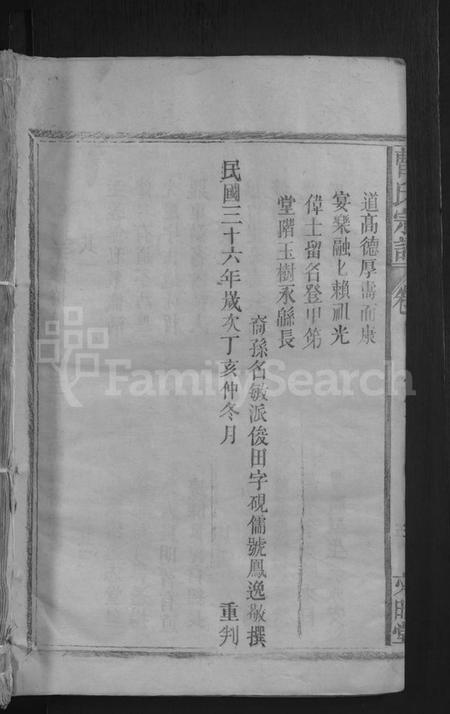 曹氏宗譜 卷
道高德厚壽而康
宴樂融匕賴祖光
偉士留名登甲第
堂階玉樹永緜長
裔孫名敏派俊田字硯儒號鳳逸敬撰
民國三十六年歲次丁亥仲冬月 重刊
FamilySearch